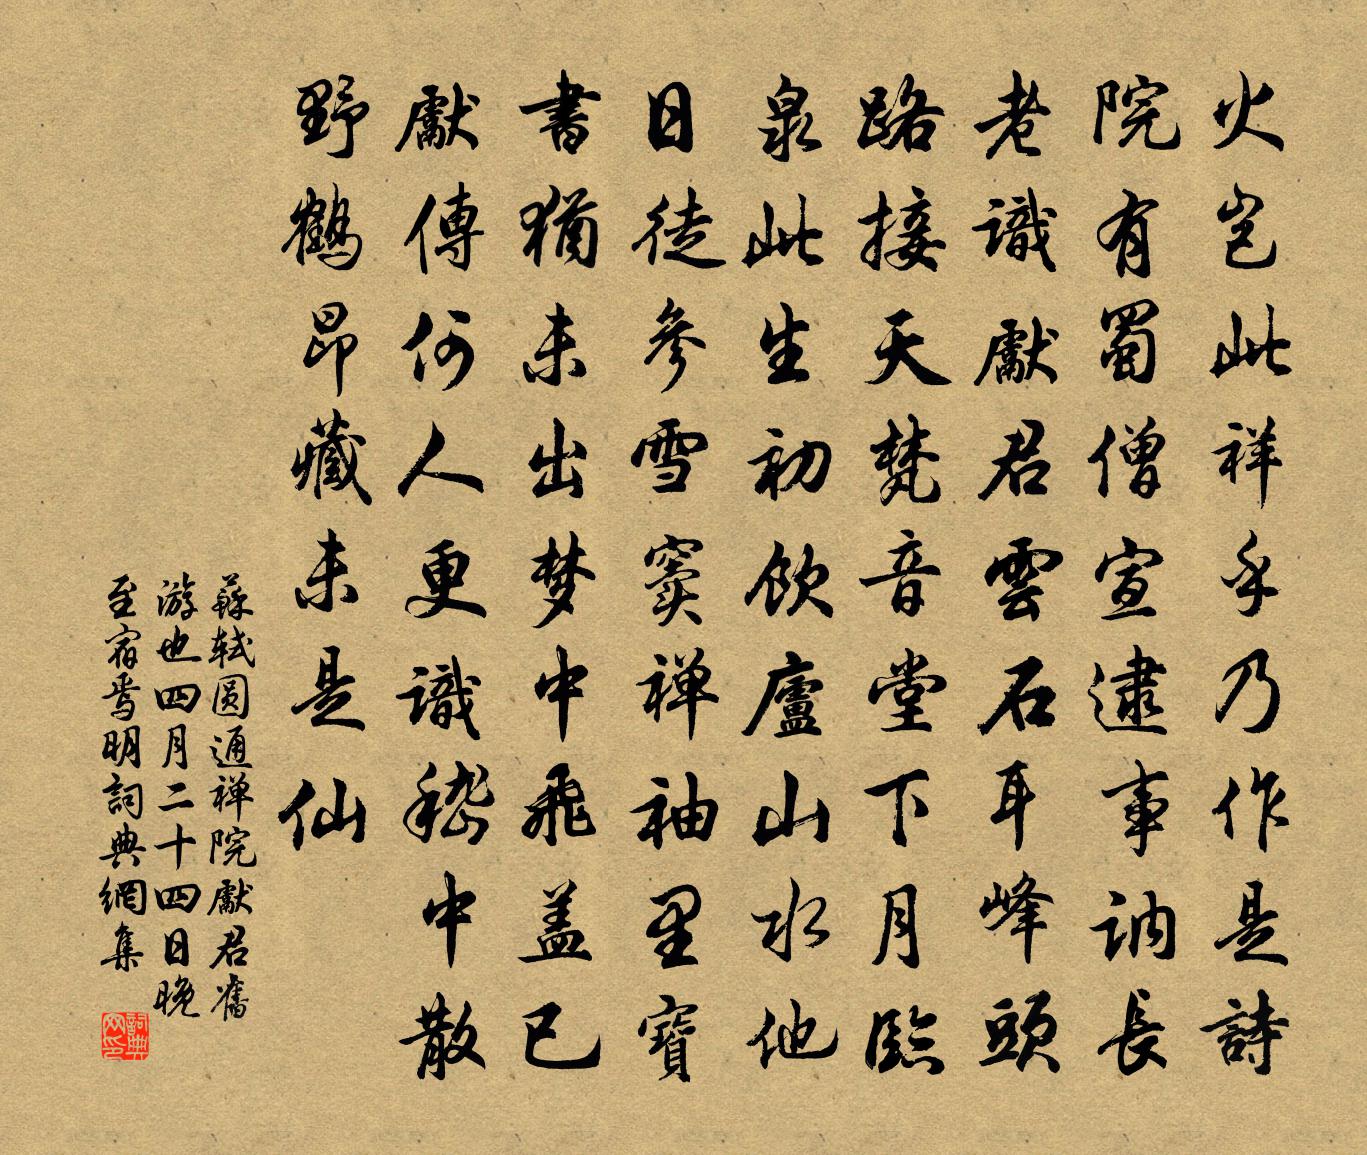 火岂此祥乎乃作是詩
院有蜀僧宣逮事訥長
老識獻君雲石耳峰頭
路接天梵音堂下月臨
泉此生初飲廬山水他
日徒參雪窦禅袖里寶
書猶未出梦中飛盖已
獻傳何人更識嵇中散
野鶴昂藏未是仙
蘇轼圆通禅院獻君舊
游也四月二十四日晚
至宿焉明詞典網集
詞典网印